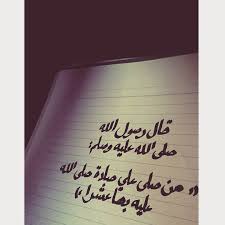 قال رسول الله
صلى الله عليه وسلم:
"من صلى علي صلاة صلى الله
عليه بها عشرا"